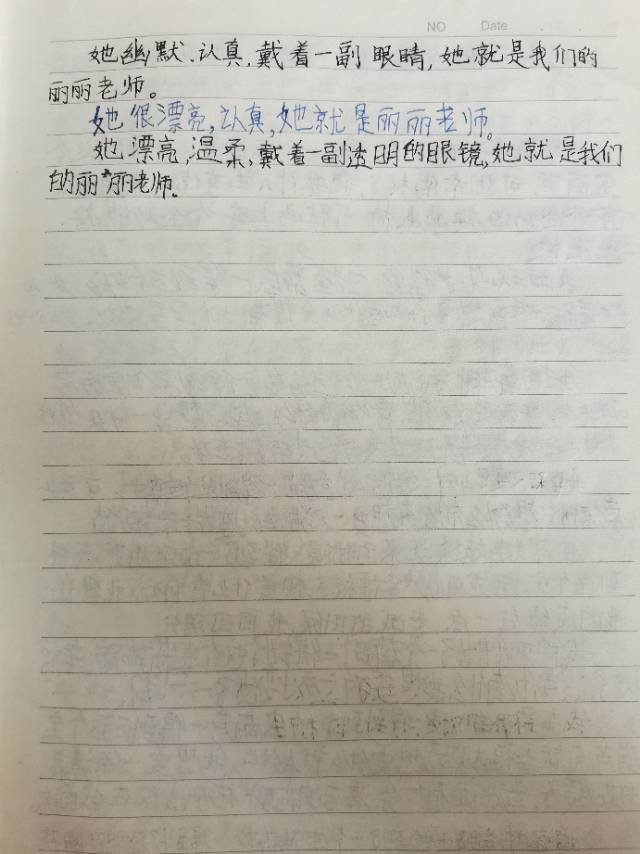 NO Date
她幽默、认真,戴着一副眼睛,她就是我们的
丽丽老师。
她很漂亮,认真,她就是丽丽老师。
她漂亮、温柔,戴着一副透明的眼镜,她就是我们
的丽丽老师。